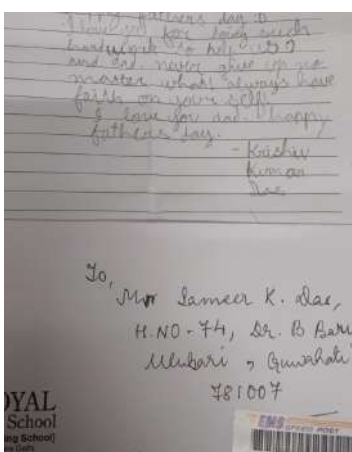 fathers day :D
I love you for doing such
hardwork to help us
and dad never give up no
master what always have
faith on your self.
I love you dad. happy
fathers day.
- Krishiv
Kumar
Das
To,
Mr Sameer K. Das,
H.NO-74, Dr. B Baru
Ulubari, Guwahati
781007
OYAL
School
ing School)
EMS SPEED POST